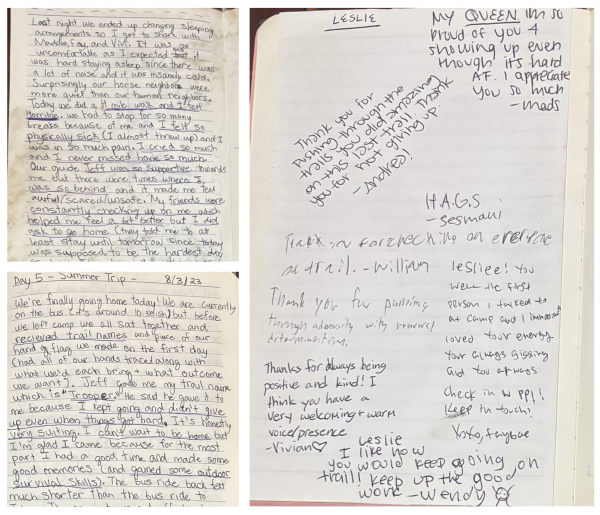 Last night we ended up changing sleeping
arrangements so I get to share with
Maddie, Fay, and Vivi. It was as
uncomfortable as I expected but it
was hard staying asleep since there was
a lot of noise and it was insanely cold.
Surprisingly our horse neighbors were
more quiet than our human neighbors.
Today we did a mile walk and I felt
Horrible. we had to stop for so many
breaks because of me and I felt so
physically sick (I almost threw up) and I
was in so much pain. I cried so much
and I never missed home so much.
Our guide Jeff was so supportive towards
me but there were times where I
was so behind and it made me feel
awful/scared/unsafe. My friends were
constantly checking up on me which
helped me feel a bit better but I did
ask to go home (they told me to at
least stay until tomorrow since today
was supposed to be the hardest day
Day 5 - Summer Trip - 8/3/23
We're finally going home today! We are currently
on the bus (it's around 10:30ish) but before
we left camp we all sat together and
recieved trail names and piece of our
hand flag we made on the first day
(had all of our hands traced along with
what we'd each bring + what outcome
we want). Jeff gave me my trail name
which is "Trooper." He said he gave it to
me because I kept going and didn't give
up even when things got hard. It's honestly
very suiting. I can't wait to be home but
I'm glad I came because for the most
part I had a good time and made some
good memories (and gained some outdoor
survival skills). The bus ride back felt
much shorter than the bus ride to
LESLIE
My QUEEN im so
proud of you 4
showing up even
though it's hard
AF. I appreciate
you so much
-mads
Thank you for
pushing through the
trails you did amazing
on this last trail. Thank
you for not giving up!
-Andrea!
H.A.G.S
-Sesmani
Thank you for checking on everyone
on trail. -William
Thank you for pushing
through adversity with renewed
determination.
lesliee! You
were the first
person I talked to
at camp and I immed
loved your energy
Your always
and you always
check in w ppl!
Keep in touch!
Xoxo, faybae
Thanks for always being
positive and kind! I
think you have a
very welcoming + warm
voice/presence
-Vivian♡
Leslie
I like how
you would keep going on
trail! keep up the good
work -Wendy